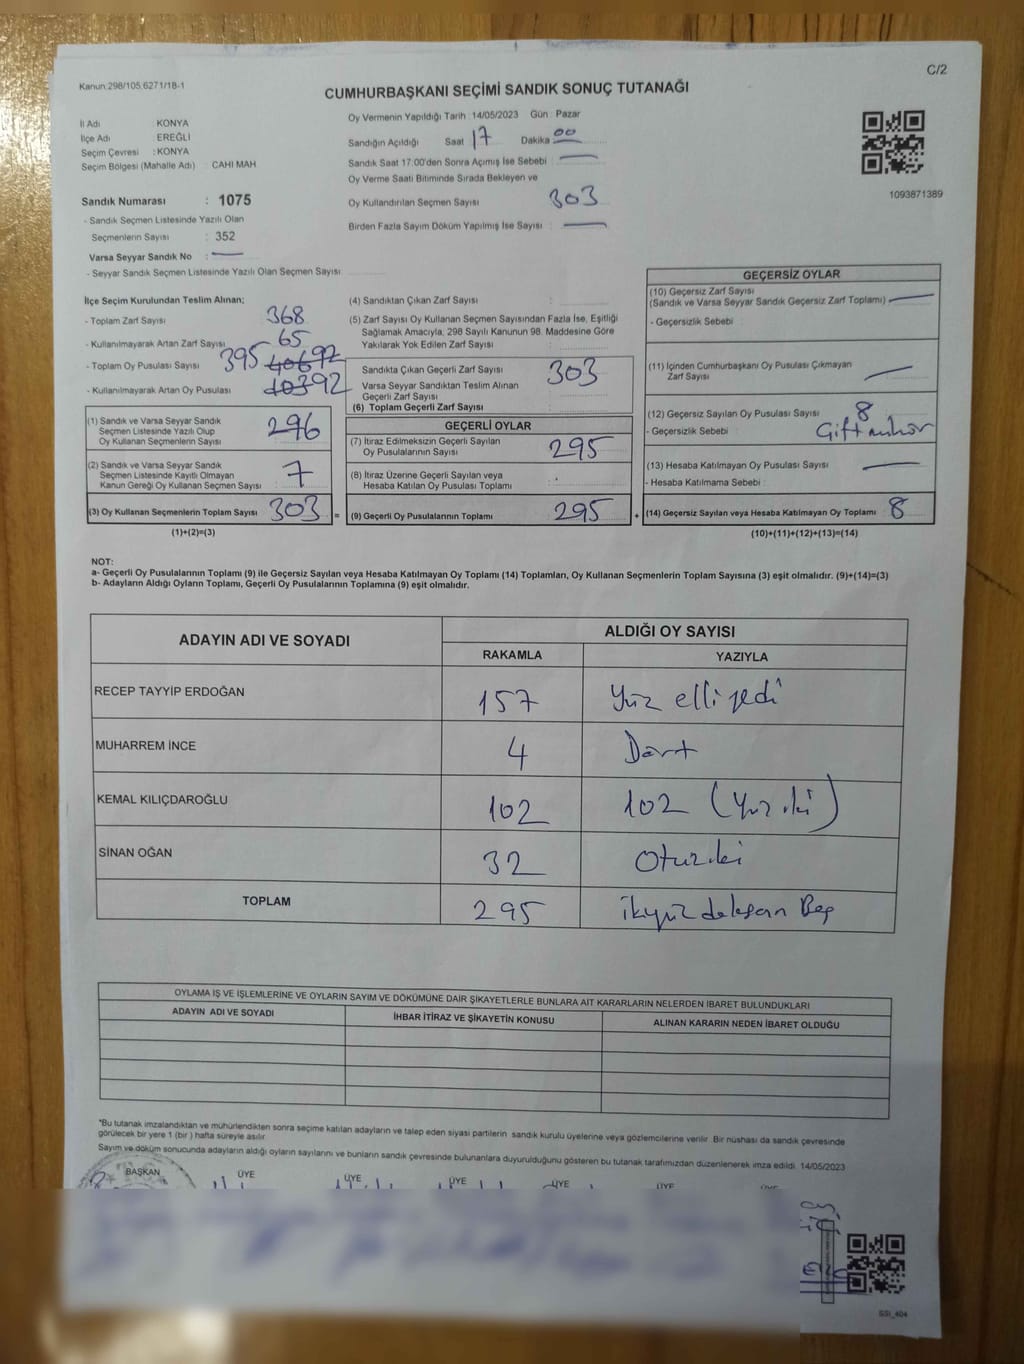 C/2
Kanun:298/105,6271/18-1
CUMHURBAŞKANI SEÇİMİ SANDIK SONUÇ TUTANAĞI
İl Adı KONYA
İlçe Adı EREĞLİ
Seçim Çevresi : KONYA
Seçim Bölgesi (Mahalle Adı) : CAHI MAH
Oy Vermenin Yapıldığı Tarih : 14/05/2023 Gün : Pazar
Sandığın Açıldığı Saat 17 Dakika 00
Sandık Saat 17:00'den Sonra Açımış İse Sebebi :
Oy Verme Saati Bitiminde Sırada Bekleyen ve
Oy Kullandırılan Seçmen Sayısı 303
Birden Fazla Sayım Döküm Yapılmış İse Sayısı :
1093871389
Sandık Numarası : 1075
- Sandık Seçmen Listesinde Yazılı Olan
Seçmenlerin Sayısı : 352
Varsa Seyyar Sandık No :
- Seyyar Sandık Seçmen Listesinde Yazılı Olan Seçmen Sayısı
İlçe Seçim Kurulundan Teslim Alınan;
- Toplam Zarf Sayısı 368
- Kullanılmayarak Artan Zarf Sayısı 65
- Toplam Oy Pusulası Sayısı 395
- Kullanılmayarak Artan Oy Pusulası 92
(1) Sandık ve Varsa Seyyar Sandık
Seçmen Listesinde Yazılı Olup
Oy Kullanan Seçmenlerin Sayısı : 296
(2) Sandık ve Varsa Seyyar Sandık
Seçmen Listesinde Kayıtlı Olmayan
Kanun Gereği Oy Kullanan Seçmen Sayısı : 7
(3) Oy Kullanan Seçmenlerin Toplam Sayısı : 303 =
(1)+(2)=(3)
(4) Sandıktan Çıkan Zarf Sayısı :
(5) Zarf Sayısı Oy Kullanan Seçmen Sayısından Fazla İse, Eşitliği
Sağlamak Amacıyla, 298 Sayılı Kanunun 98. Maddesine Göre
Yakılarak Yok Edilen Zarf Sayısı :
Sandıkta Çıkan Geçerli Zarf Sayısı 303
Varsa Seyyar Sandıktan Teslim Alınan
Geçerli Zarf Sayısı
(6) Toplam Geçerli Zarf Sayısı :
GEÇERLİ OYLAR
(7) İtiraz Edilmeksizin Geçerli Sayılan
Oy Pusulalarının Sayısı : 295
(8) İtiraz Üzerine Geçerli Sayılan veya
Hesaba Katılan Oy Pusulası Toplamı :
(9) Geçerli Oy Pusulalarının Toplamı : 295 +
GEÇERSİZ OYLAR
(10) Geçersiz Zarf Sayısı
(Sandık ve Varsa Seyyar Sandık Geçersiz Zarf Toplamı)
- Geçersizlik Sebebi :
(11) İçinden Cumhurbaşkanı Oy Pusulası Çıkmayan
Zarf Sayısı :
(12) Geçersiz Sayılan Oy Pusulası Sayısı : 8
- Geçersizlik Sebebi : Gift mühür
(13) Hesaba Katılmayan Oy Pusulası Sayısı :
- Hesaba Katılmama Sebebi :
(14) Geçersiz Sayılan veya Hesaba Katılmayan Oy Toplamı : 8
(10)+(11)+(12)+(13)=(14)
NOT:
a- Geçerli Oy Pusulalarının Toplamı (9) ile Geçersiz Sayılan veya Hesaba Katılmayan Oy Toplamı (14) Toplamları, Oy Kullanan Seçmenlerin Toplam Sayısına (3) eşit olmalıdır. (9)+(14)=(3)
b- Adayların Aldığı Oyların Toplamı, Geçerli Oy Pusulalarının Toplamına (9) eşit olmalıdır.
ADAYIN ADI VE SOYADI ALDIĞI OY SAYISI
RAKAMLA YAZIYLA
RECEP TAYYİP ERDOĞAN 157 Yüz elli yedi
MUHARREM İNCE 4 Dört
KEMAL KILIÇDAROĞLU 102 102 (Yüz iki)
SİNAN OĞAN 32 Otuziki
TOPLAM 295 ikiyüz doksan Beş
OYLAMA İŞ VE İŞLEMLERİNE VE OYLARIN SAYIM VE DÖKÜMÜNE DAİR ŞİKAYETLERLE BUNLARA AİT KARARLARIN NELERDEN İBARET BULUNDUKLARI
ADAYIN ADI VE SOYADI İHBAR İTİRAZ VE ŞİKAYETİN KONUSU ALINAN KARARIN NEDEN İBARET OLDUĞU
"Bu tutanak imzalandıktan ve mühürlendikten sonra seçime katılan adayların ve talep eden siyasi partilerin sandık kurulu üyelerine veya gözlemcilerine verilir. Bir nüshası da sandık çevresinde
görülecek bir yere 1 (bir ) hafta süreyle asılır.
Sayım ve döküm sonucunda adayların aldığı oyların sayılarını ve bunların sandık çevresinde bulunanlara duyurulduğunu gösteren bu tutanak tarafımızdan düzenlenerek imza edildi. 14/05/2023
BAŞKAN ÜYE ÜYE ÜYE ÜYE ÜYE ÜYE
SSI_404